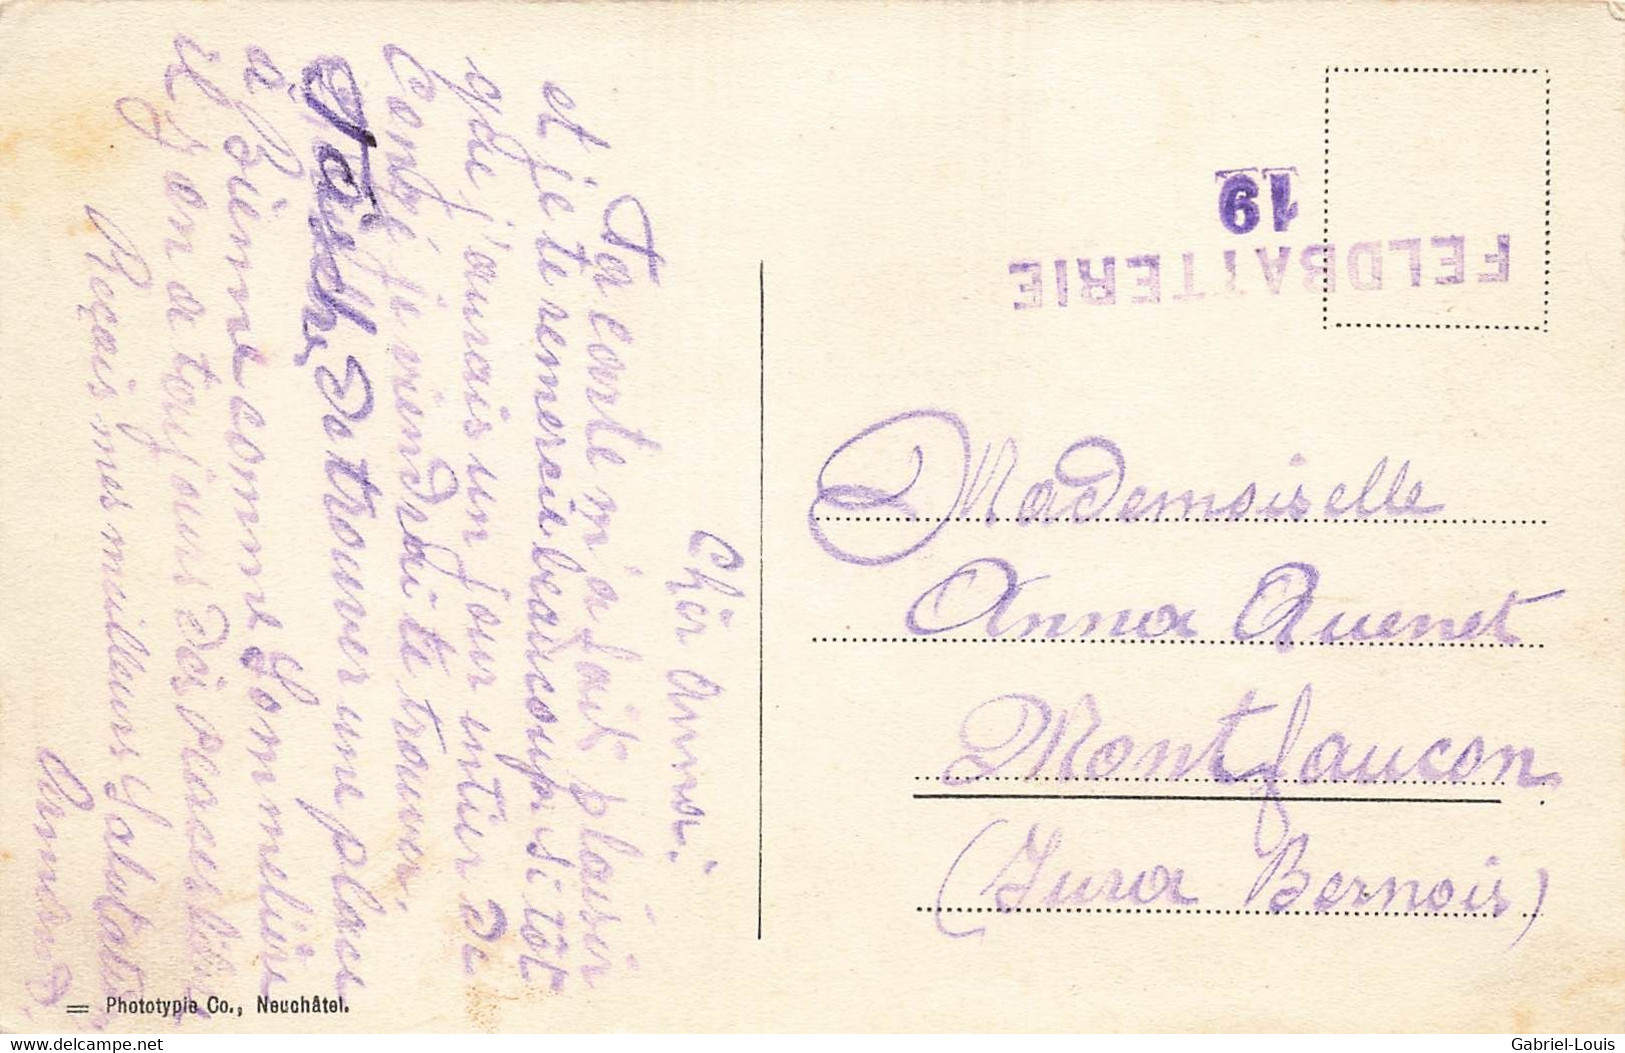 Cher Anna.
Ta carte m'a fait plaisir
et je te remercie beaucoup. Si tôt
que j'aurais un jour entier de
Congé je viendrai te trouver.
Tâche, de trouver une place
à Bienne comme Sommelière
il y en a toujours des places libre
Reçois mes meilleurs Salutations
Armand.
FELDBATTERIE
19
Mademoiselle
Anna Quenet
Montfaucon
(Jura Bernois)
= Phototypie Co., Neuchâtel.
www.delcampe.net
Gabriel-Louis